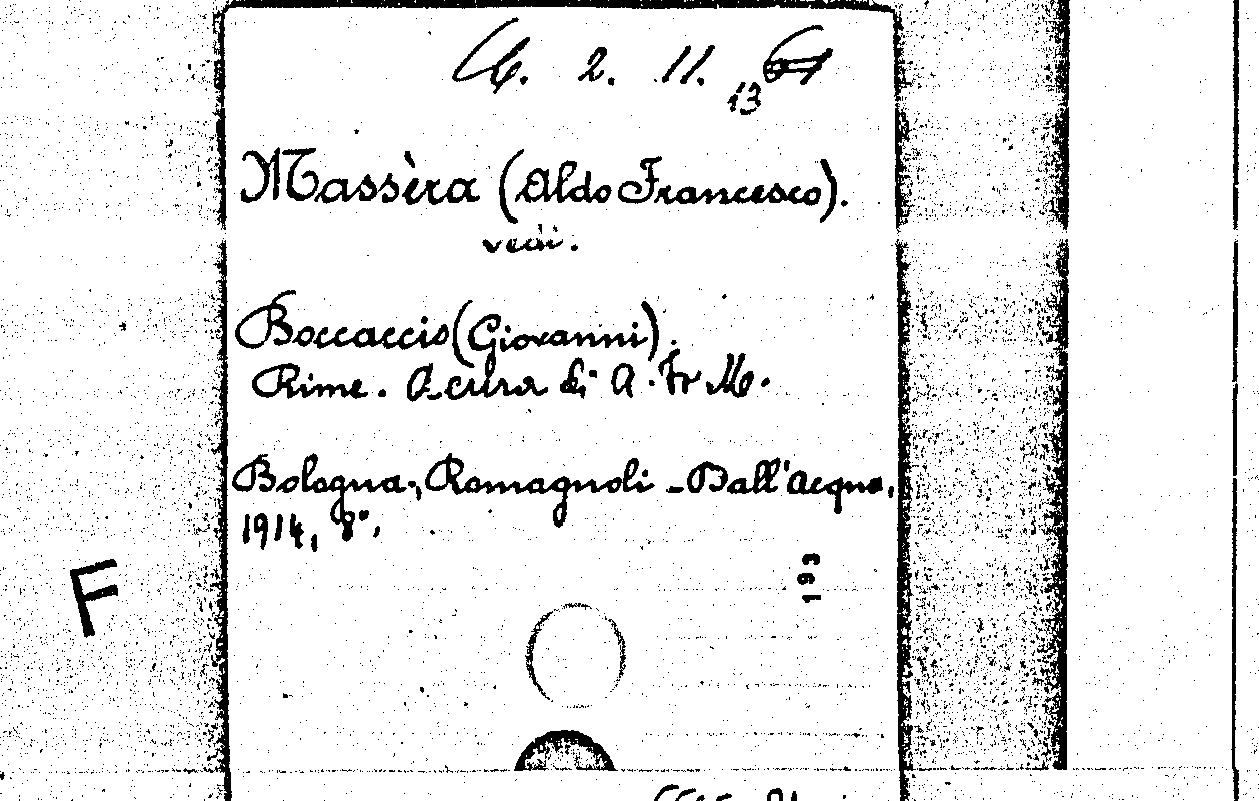 2. 11.
13
Massèra (Aldo Francesco).
vedi.
Boccaccio (Giovanni).
Rime. A cura di A. Fr M.
Bologna, Romagnoli - Dall'Acqua,
1914, 8°,
193
F